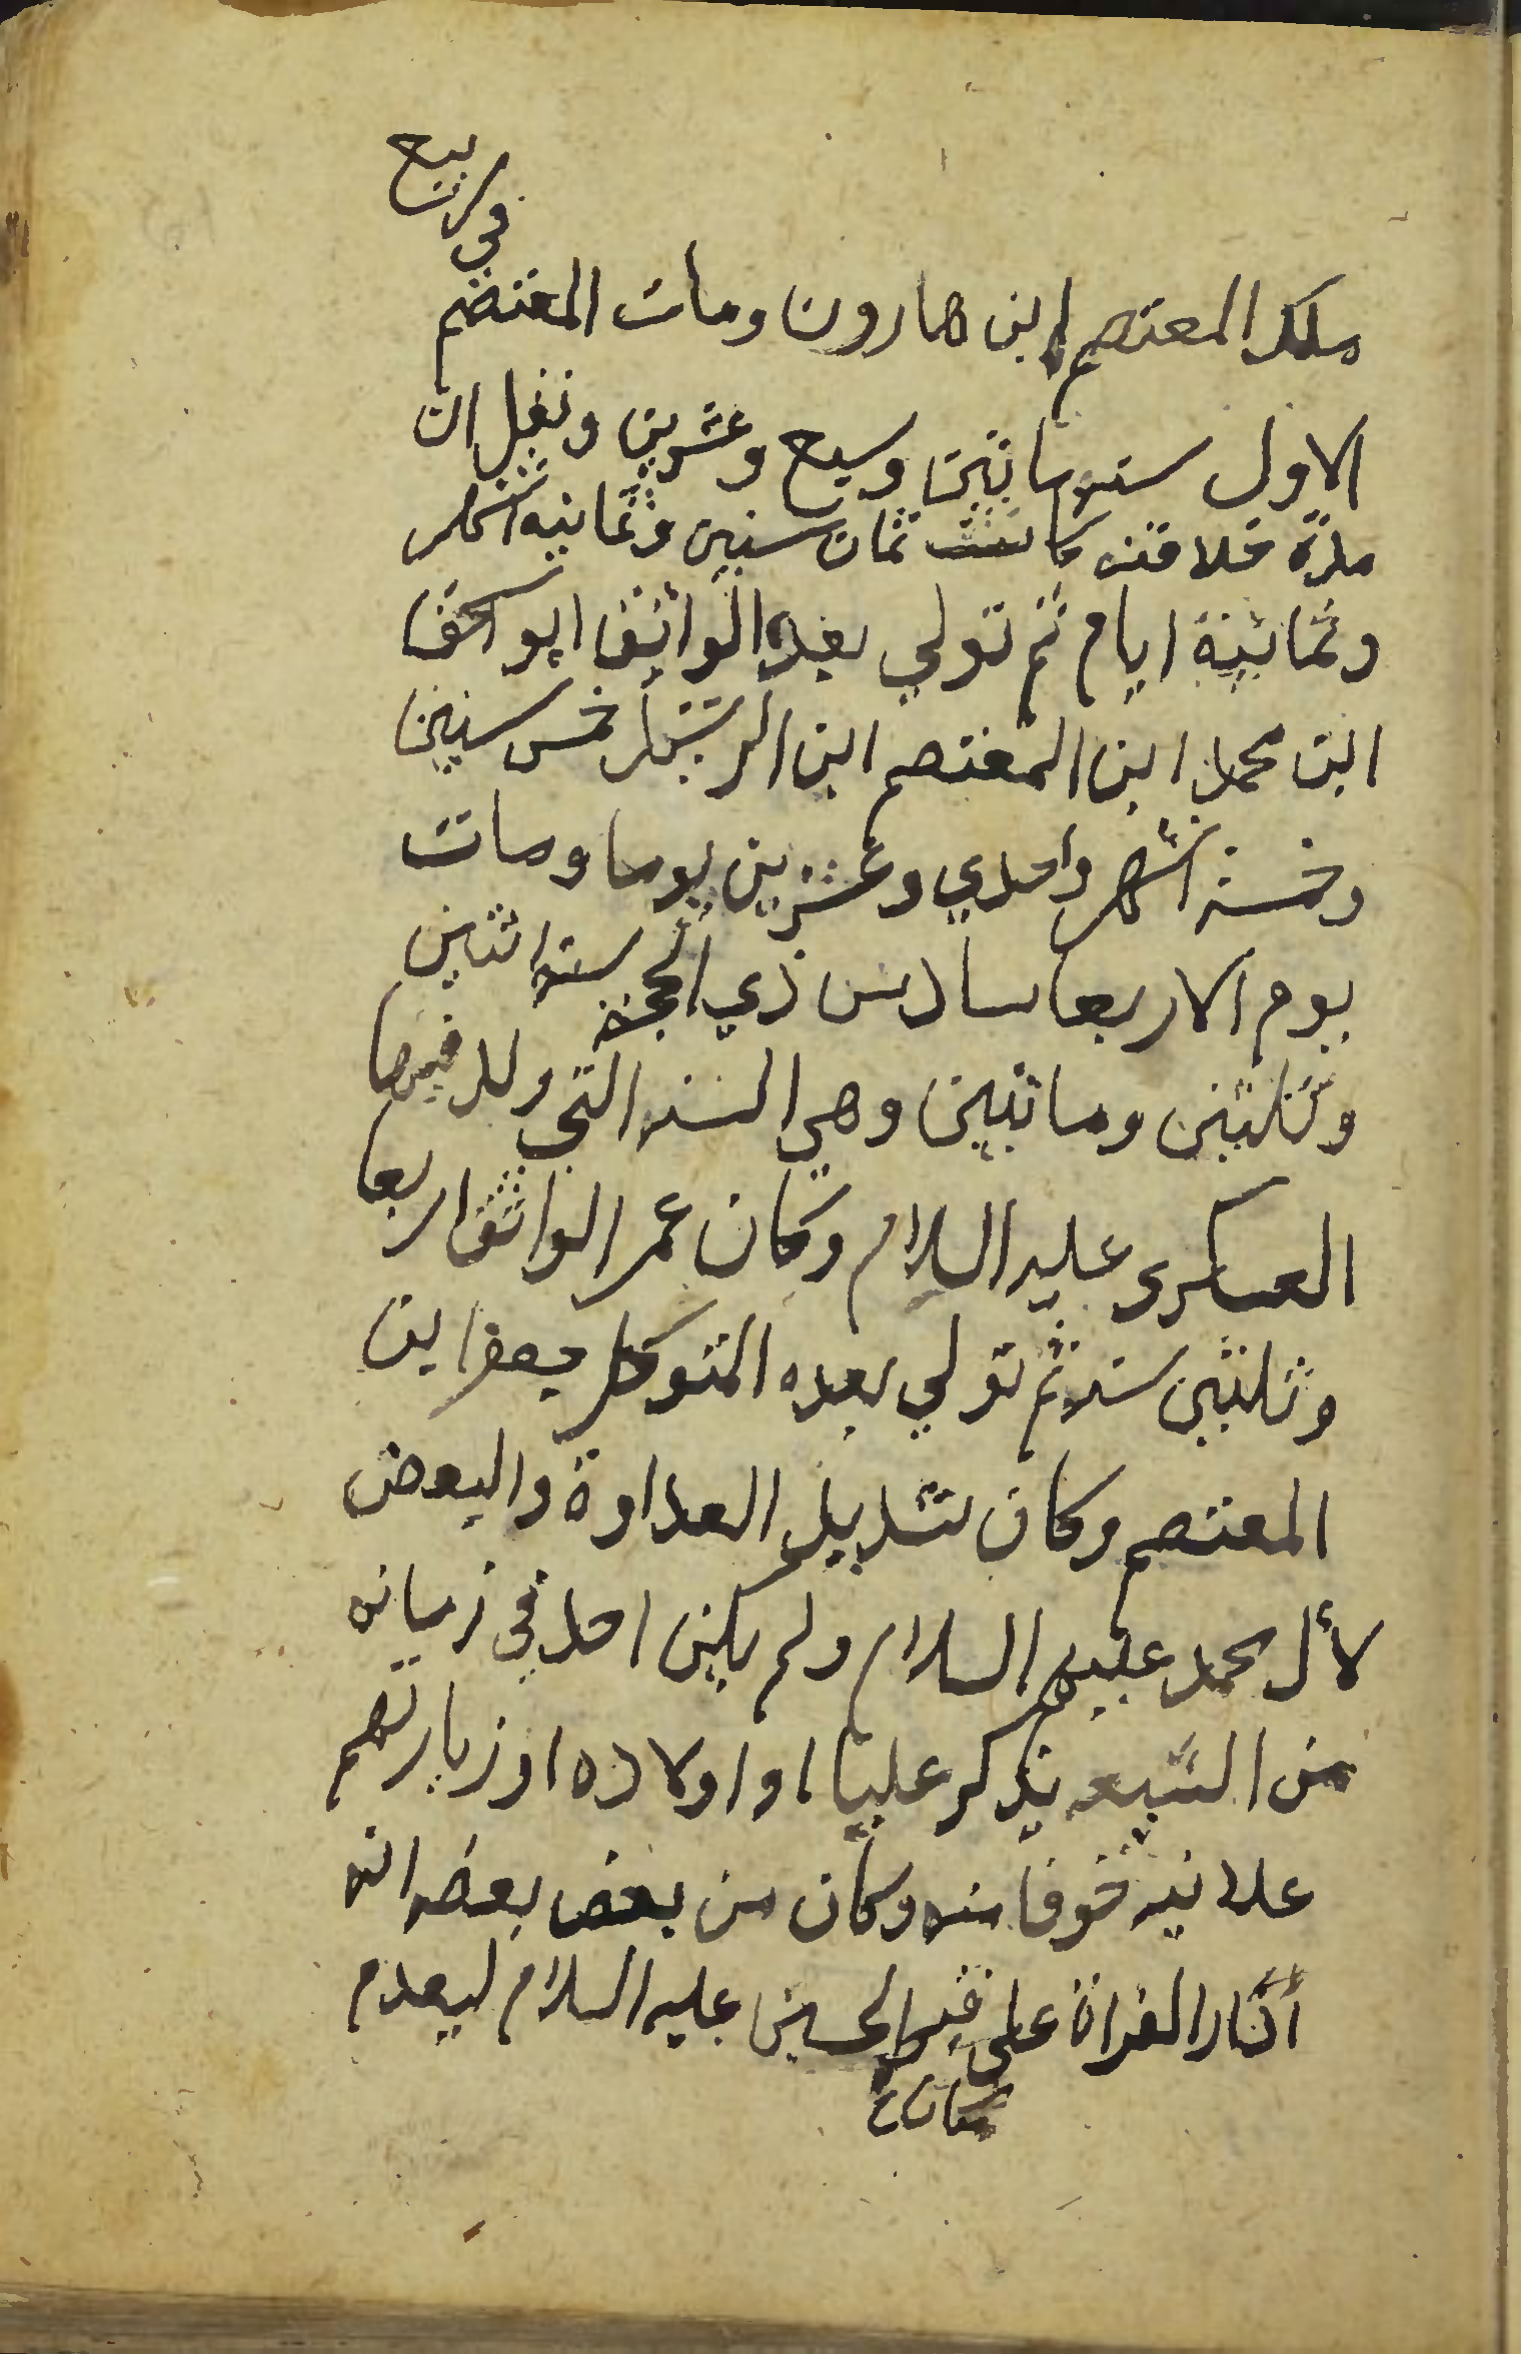 ملك المعتصم ابن هارون ومات المعتصم في ربيع
الاول سنه ماتين وسبع وعشرين ونقل ان
مدة خلافته كانت ثمان سنين وثمانيه اشهر
وثمانية ايام ثم تولي بعده الواثق ابو اسحق
ابن محمد ابن المعتصم ابن الرشيد خمس سنين
وخمسة اشهر واحدي وعشرين يوما ومات
يوم الاربعا سادس ذي الحجة سنه اثنين
وثلثين وماتين وهي السنه التي ولد فيها
العسكرى عليه السلام وكان عمر الواثق اربعا
وثلثين سنه ثم تولي بعده المتوكل جعفر ابن
المعتصم وكان شديد العداوة والبعض
لأل محمد عليهم السلام ولم يكن احد في زمانه
من الشيعه يذكر عليا او اولاده او زيارتهم
علانيه خوفا منه وكان من بعض بعضه انه
أثار الفراة على قبر الحسين عليه السلام ليعدم